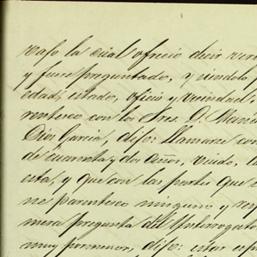 bajo la cual ofrecio decir ver
y fuere preguntado, y siendolo p
edad, estado, oficio y vecindad,
rentesco con los Sres. D. Manu
Dios Garcia, dijo: llamarse com
de cuarenta y dos años, viudo, la
esta, y que con las partes que
ne parentesco ninguno y resp
mera pregunta del Interrogato
muy pormenor, dijo: estar